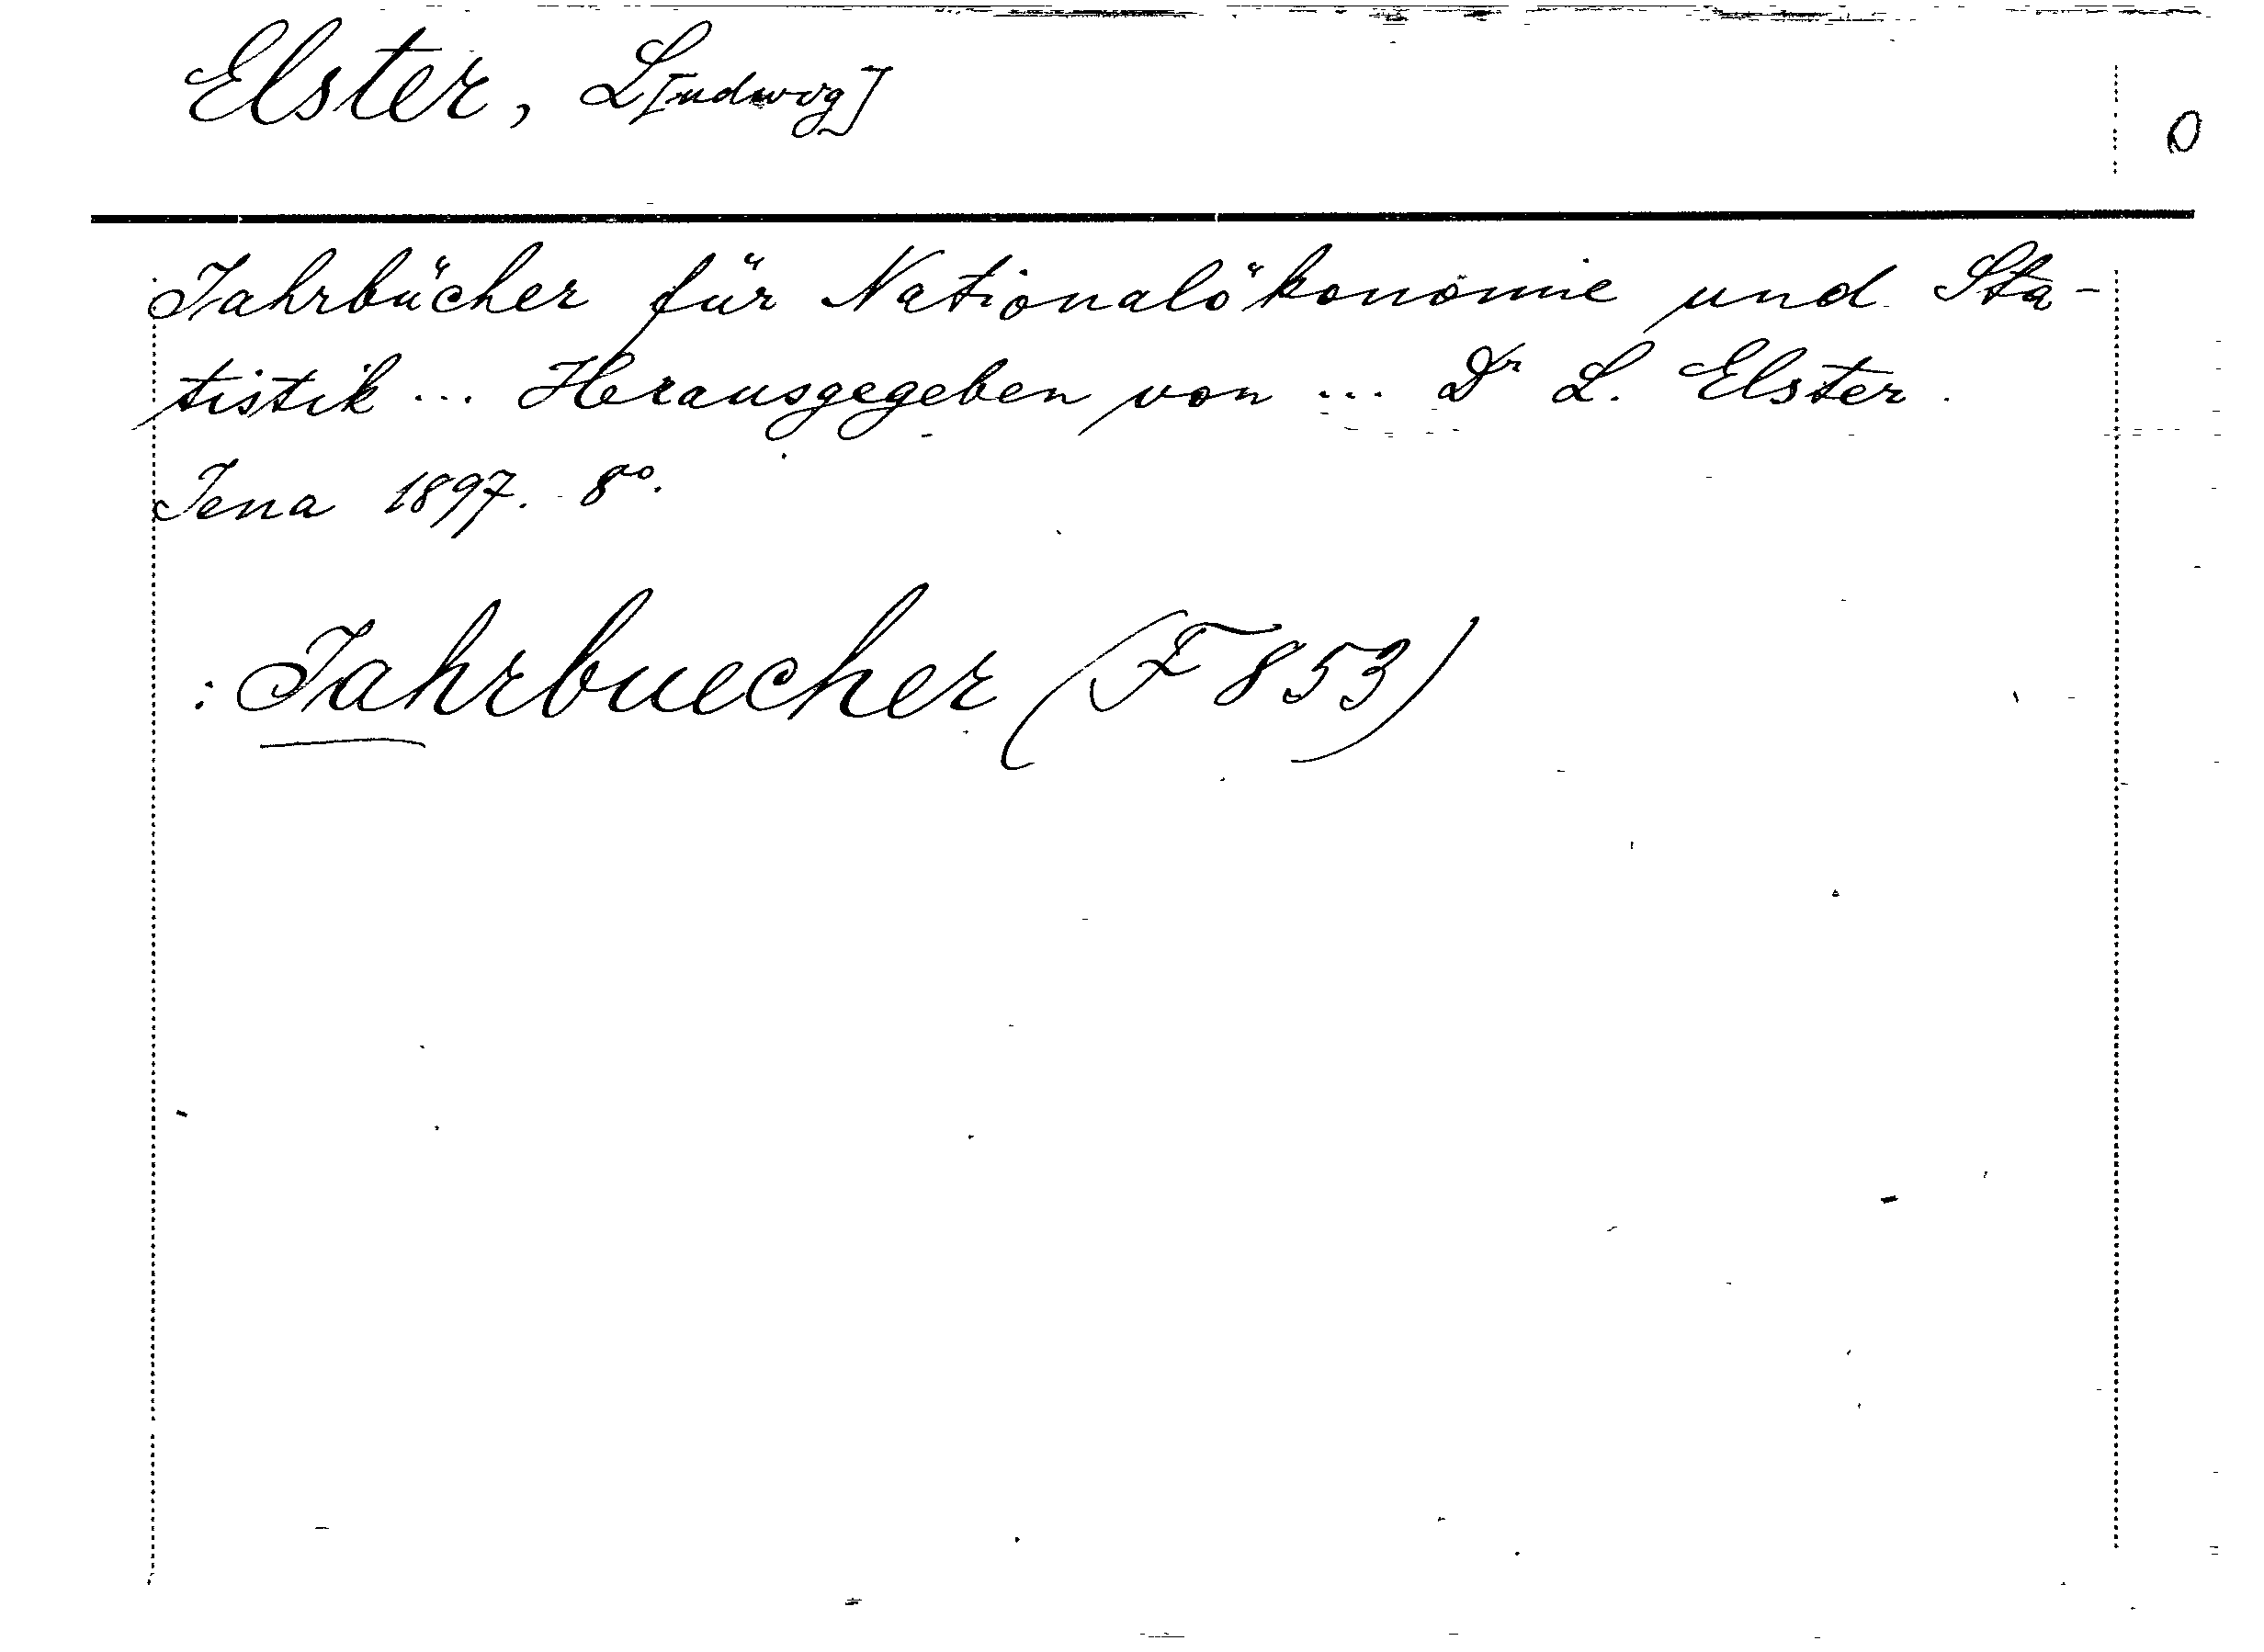 Elster, L[udwig]
O
Jahrbücher für Nationalökonomie und Sta-
tistik ... Herausgegeben von ... Dr L. Elster.
Jena 1897. 8°.
: Jahrbuecher (F 853)